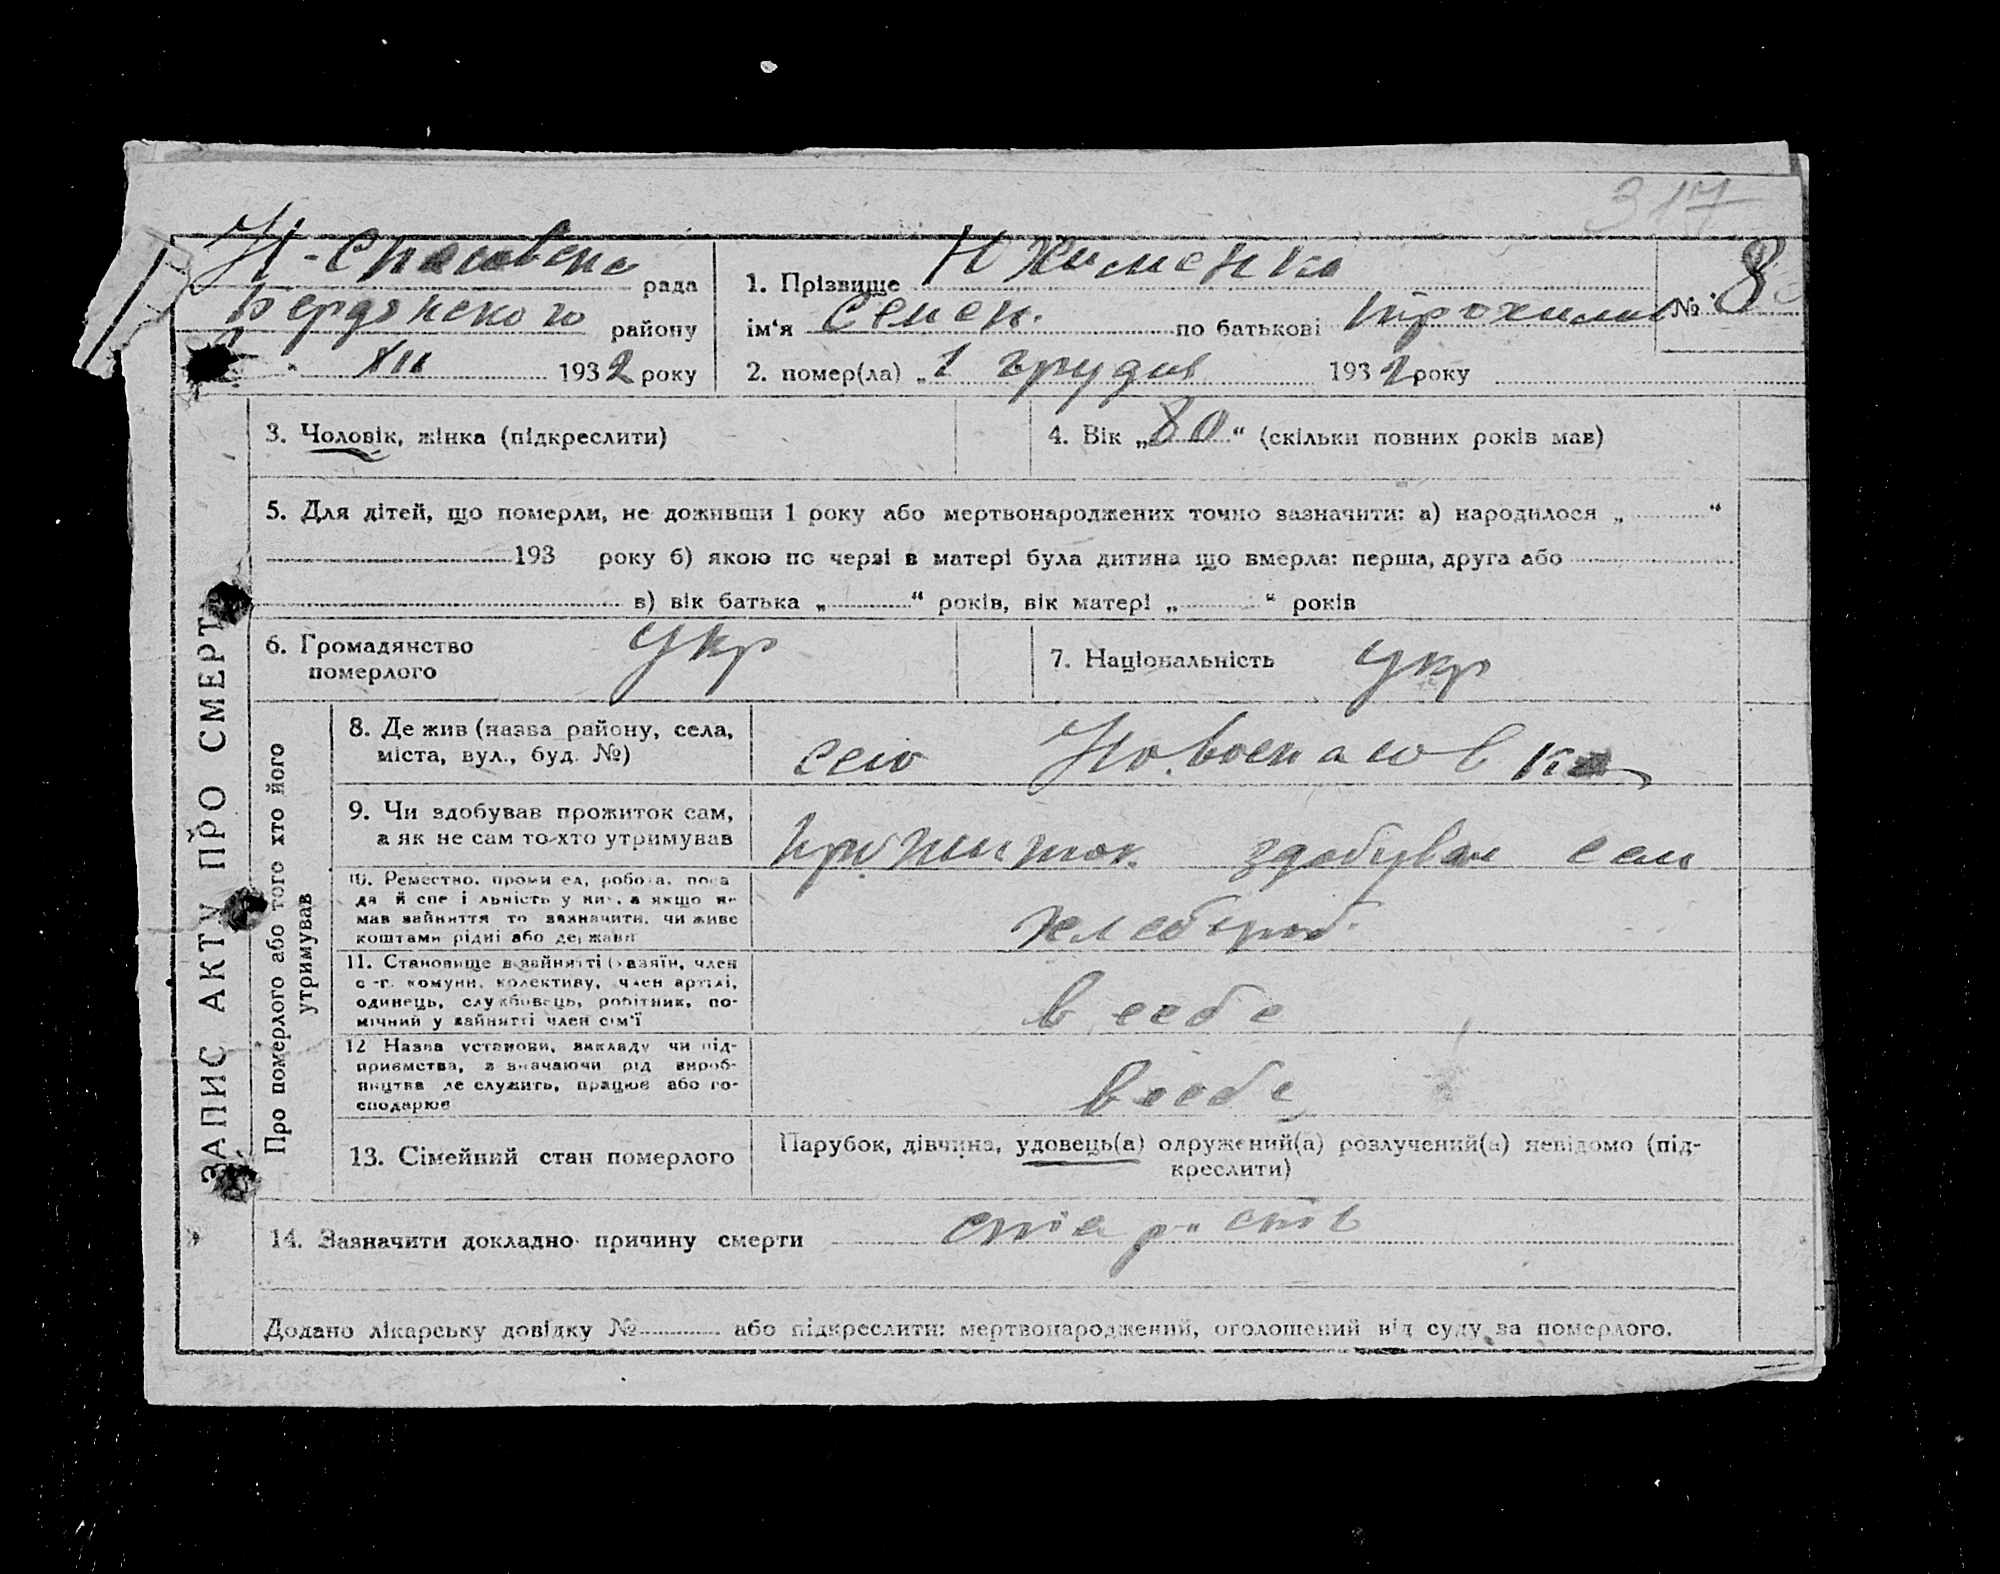 317
Н-Спасовська рада
Бердянського району
XII 1932 року
1. Прізвище Юхименко
ім‘я Семен по батькові Трохимов
№ 8
2. помер(ла) „1 грудня 1932 року
ЗАПИС АКТУ ПРО СМЕРТЬ
3. Чоловік, жінка (підкреслити)
4. Вік „80“ (скільки повних років мав)
5. Для дітей, що померли, не доживши 1 року або мертвонароджених точно зазначити: а) народилося „ “
193 року б) якою по черзі в матері була дитина що вмерла: перша, друга або
в) вік батька „ “ років, вік матері „ “ років
6. Громадянство
померлого
укр
7. Національність укр
Про померлого або того хто його
утримував
8. Де жив (назва району, села,
міста, вул., буд. №)
село Новоспасовка
9. Чи здобував прожиток сам,
а як не сам то-хто утримував
прожиток здобував сам
10. Ремество, промисел, робота, поса
да й спеціальність у ній, а якщо не
мав зайняття то зазначити, чи живе
коштами рідні або держави
хлебороб
11. Становище в зайнятті (хазяїн, член
с-г. комуни, колективу, член артілі,
одинець, службовець, робітник, по-
мічний у зайнятті член сім‘ї
в себе
12 Назва установи, закладу чи під-
приємства, зазначаючи рід вироб-
ництва де служить, працює або го-
сподарює
в себе
13. Сімейний стан померлого
Парубок, дівчина, удовець(а) одружений(а) розлучений(а) невідомо (під-
креслити)
14. Зазначити докладно причину смерти старость
Додано лікарську довідку № або підкреслити: мертвонароджений, оголошений від суду за померлого.